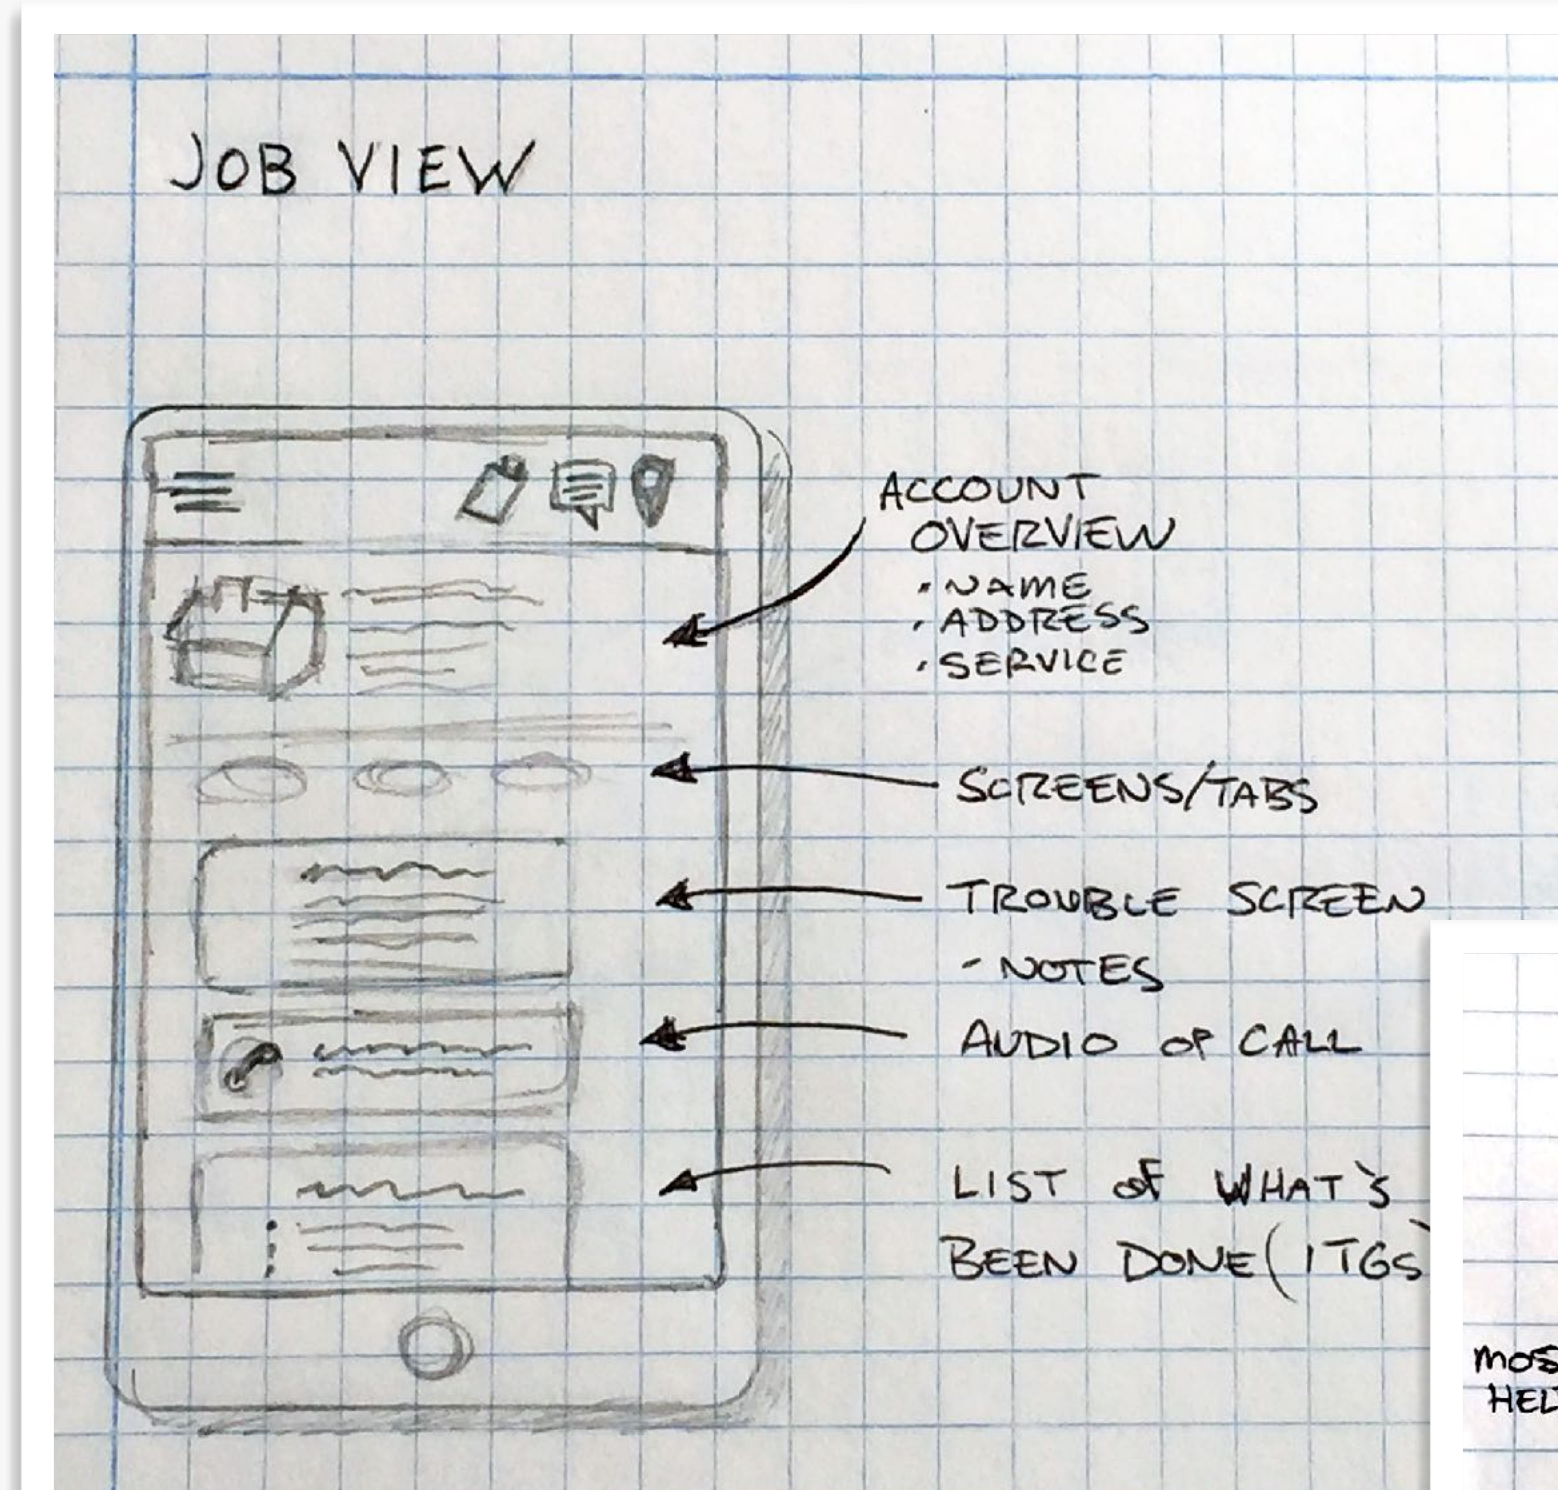 JOB VIEW
ACCOUNT
OVERVIEW
• NAME
• ADDRESS
• SERVICE
SCREENS/TABS
TROUBLE SCREEN
- NOTES
AUDIO OF CALL
LIST OF WHAT'S
BEEN DONE (ITGS)